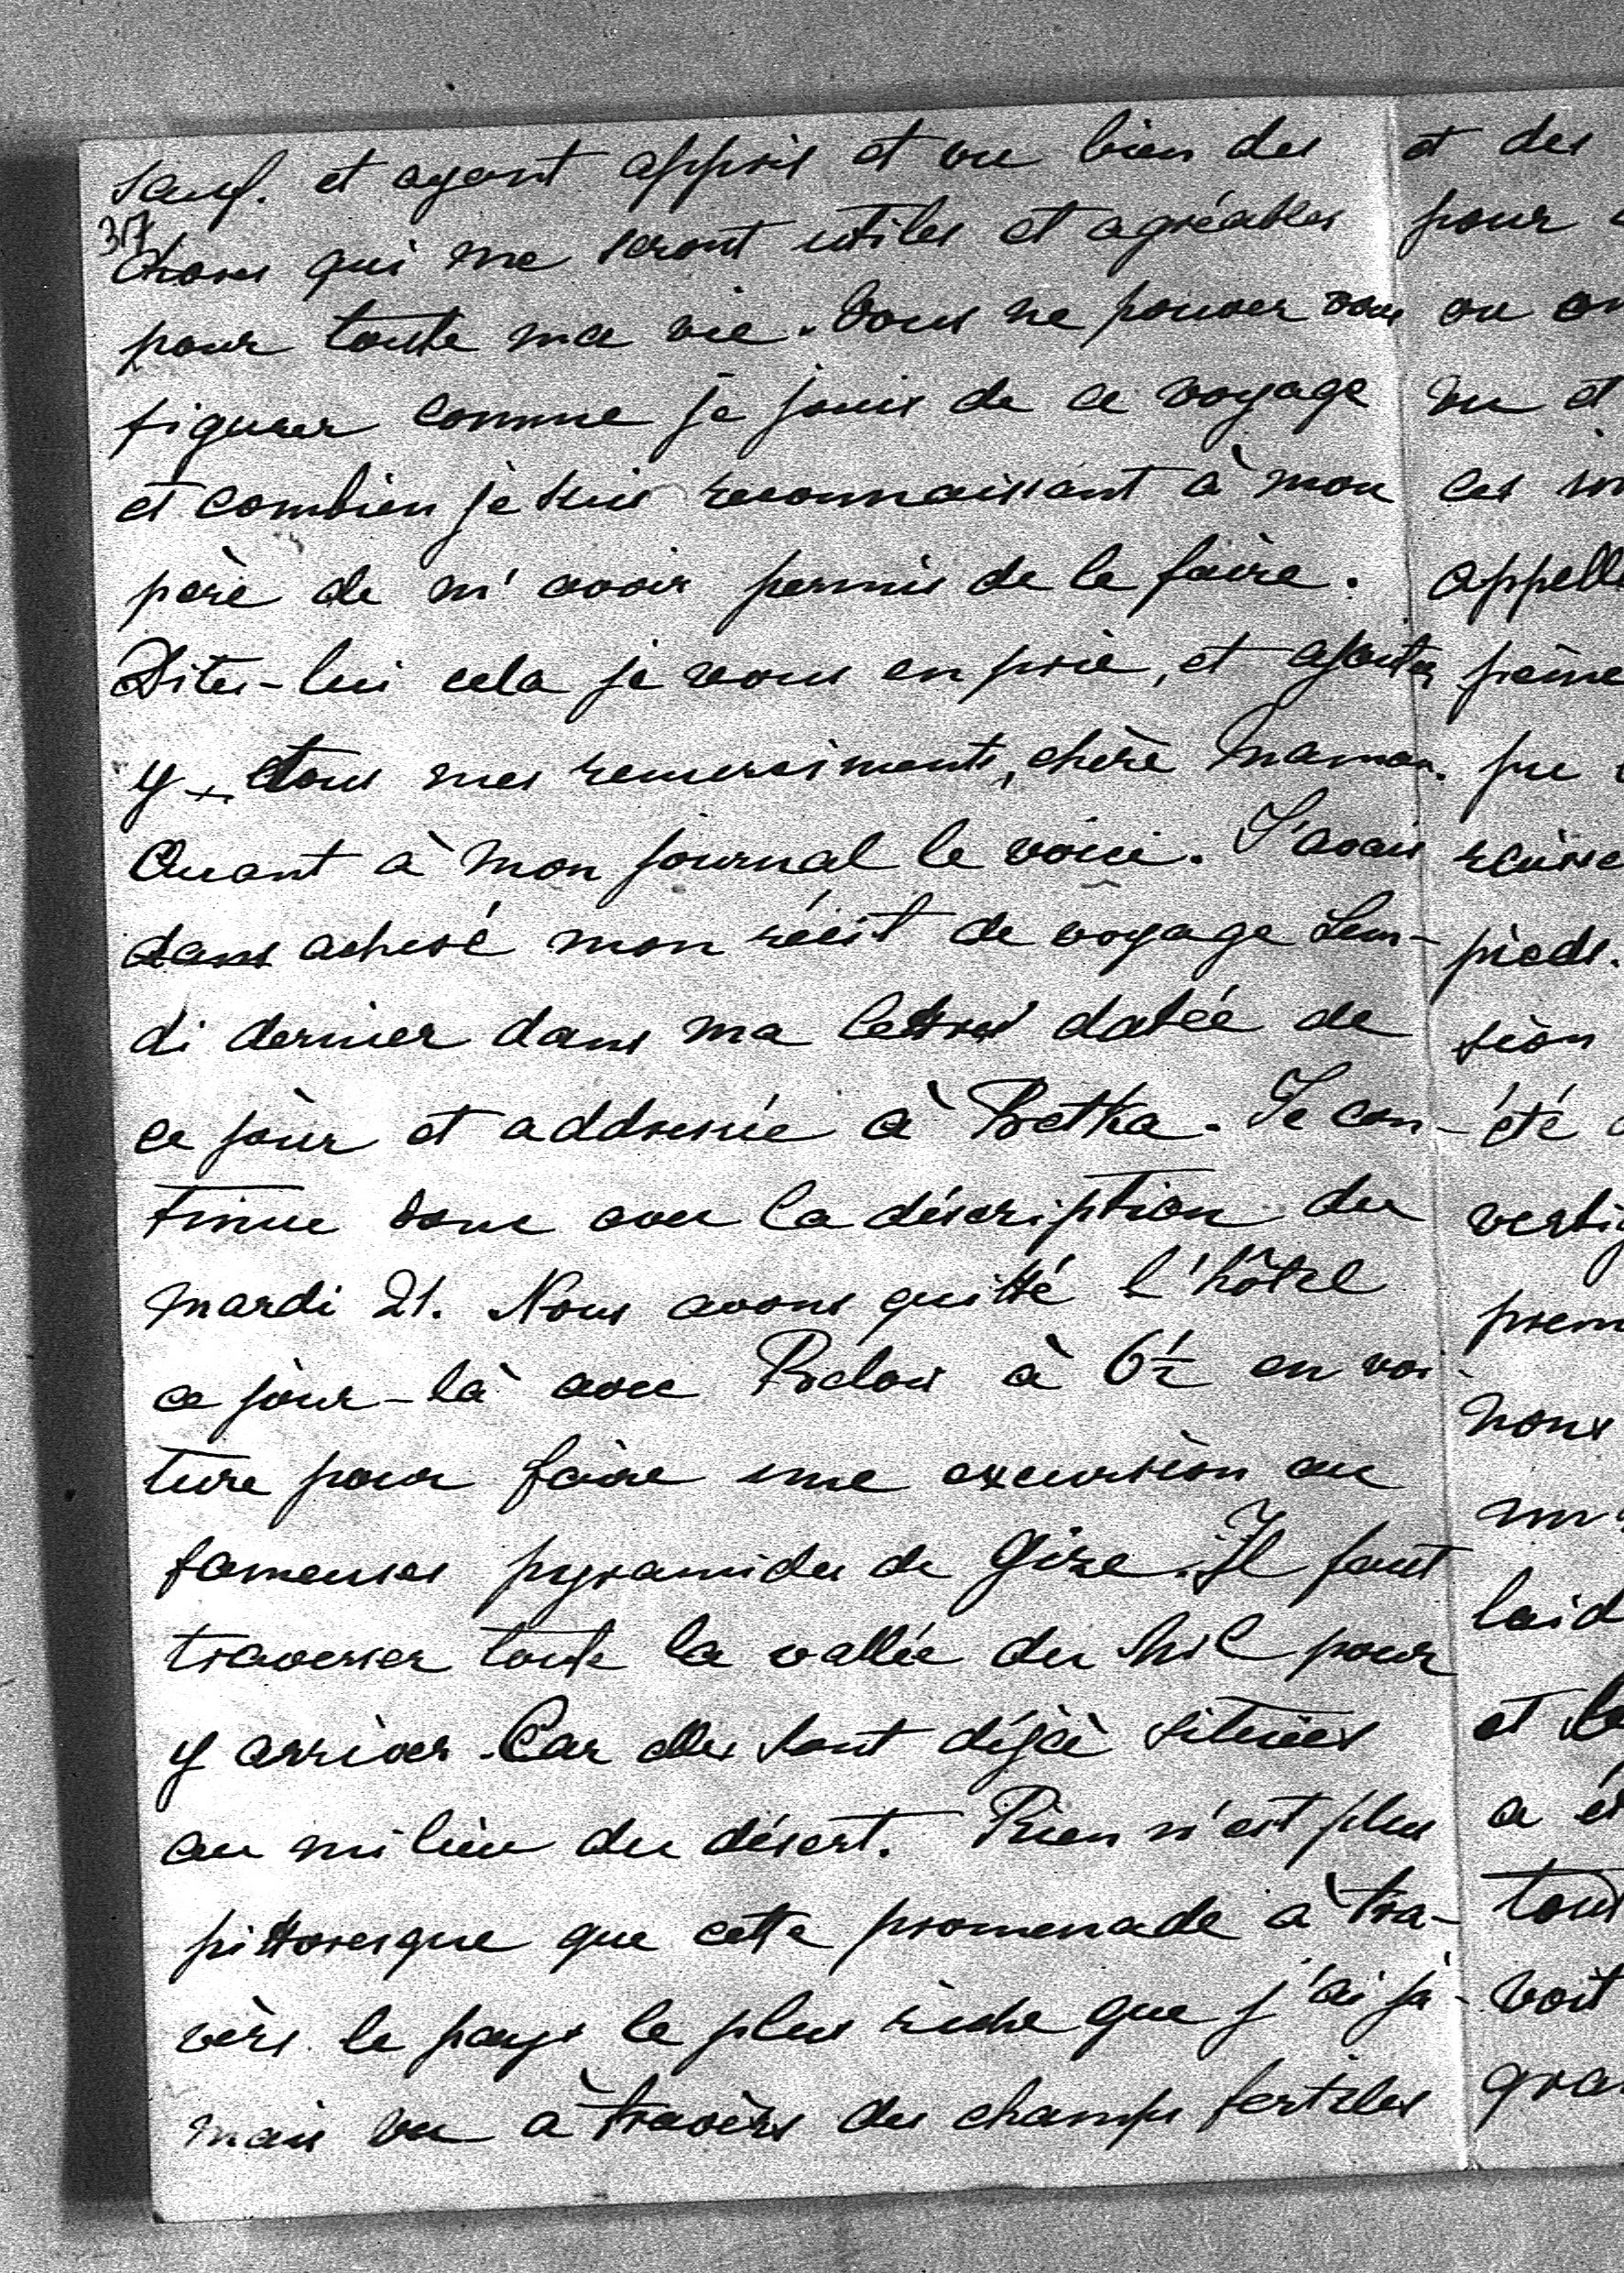 sauf. et ayant appris et vu bien des
37
choses qui me seront utiles et agréables
pour toute ma vie. Vous ne pouvez vous
figurer comme je jouis de ce voyage
et combien je suis reconnaissant à mon
père de m'avoir permis de le faire.
Dites-lui cela je vous en prie, et ajoutez
y tous mes remerciments, chère Maman.
Quant à mon journal le voici. J'avais
dans achevé mon récit de voyage Lun-
di dernier dans ma lettre datée de
ce jour et addressée à Betka. Je con-
tinue donc avec la déscription du
mardi 21. Nous avons quitté l'hôtel
ce jour-là avec à 6½ en voi-
ture pour faire une excursion au
fameuses pyramides de Gize. Il faut
traverser toute la vallée du Nil pour
y arriver. Car elles sont déjà situées
au milieu du désert. Rien n'est plus
pittoresque que cette promenade à tra-
vèrs le pays le plus riche que j'ai ja-
mais vu à travèrs des champs fertiles
et des
pour
ou
vu et
ces
appell
peine
pu
pieds.
sion
été
verti
prem
nous
laid
et
a
tout
voit
gra